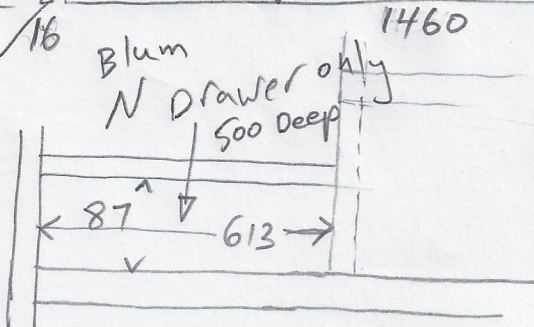 16
1460
Blum
N Drawer only
500 Deep
87
613